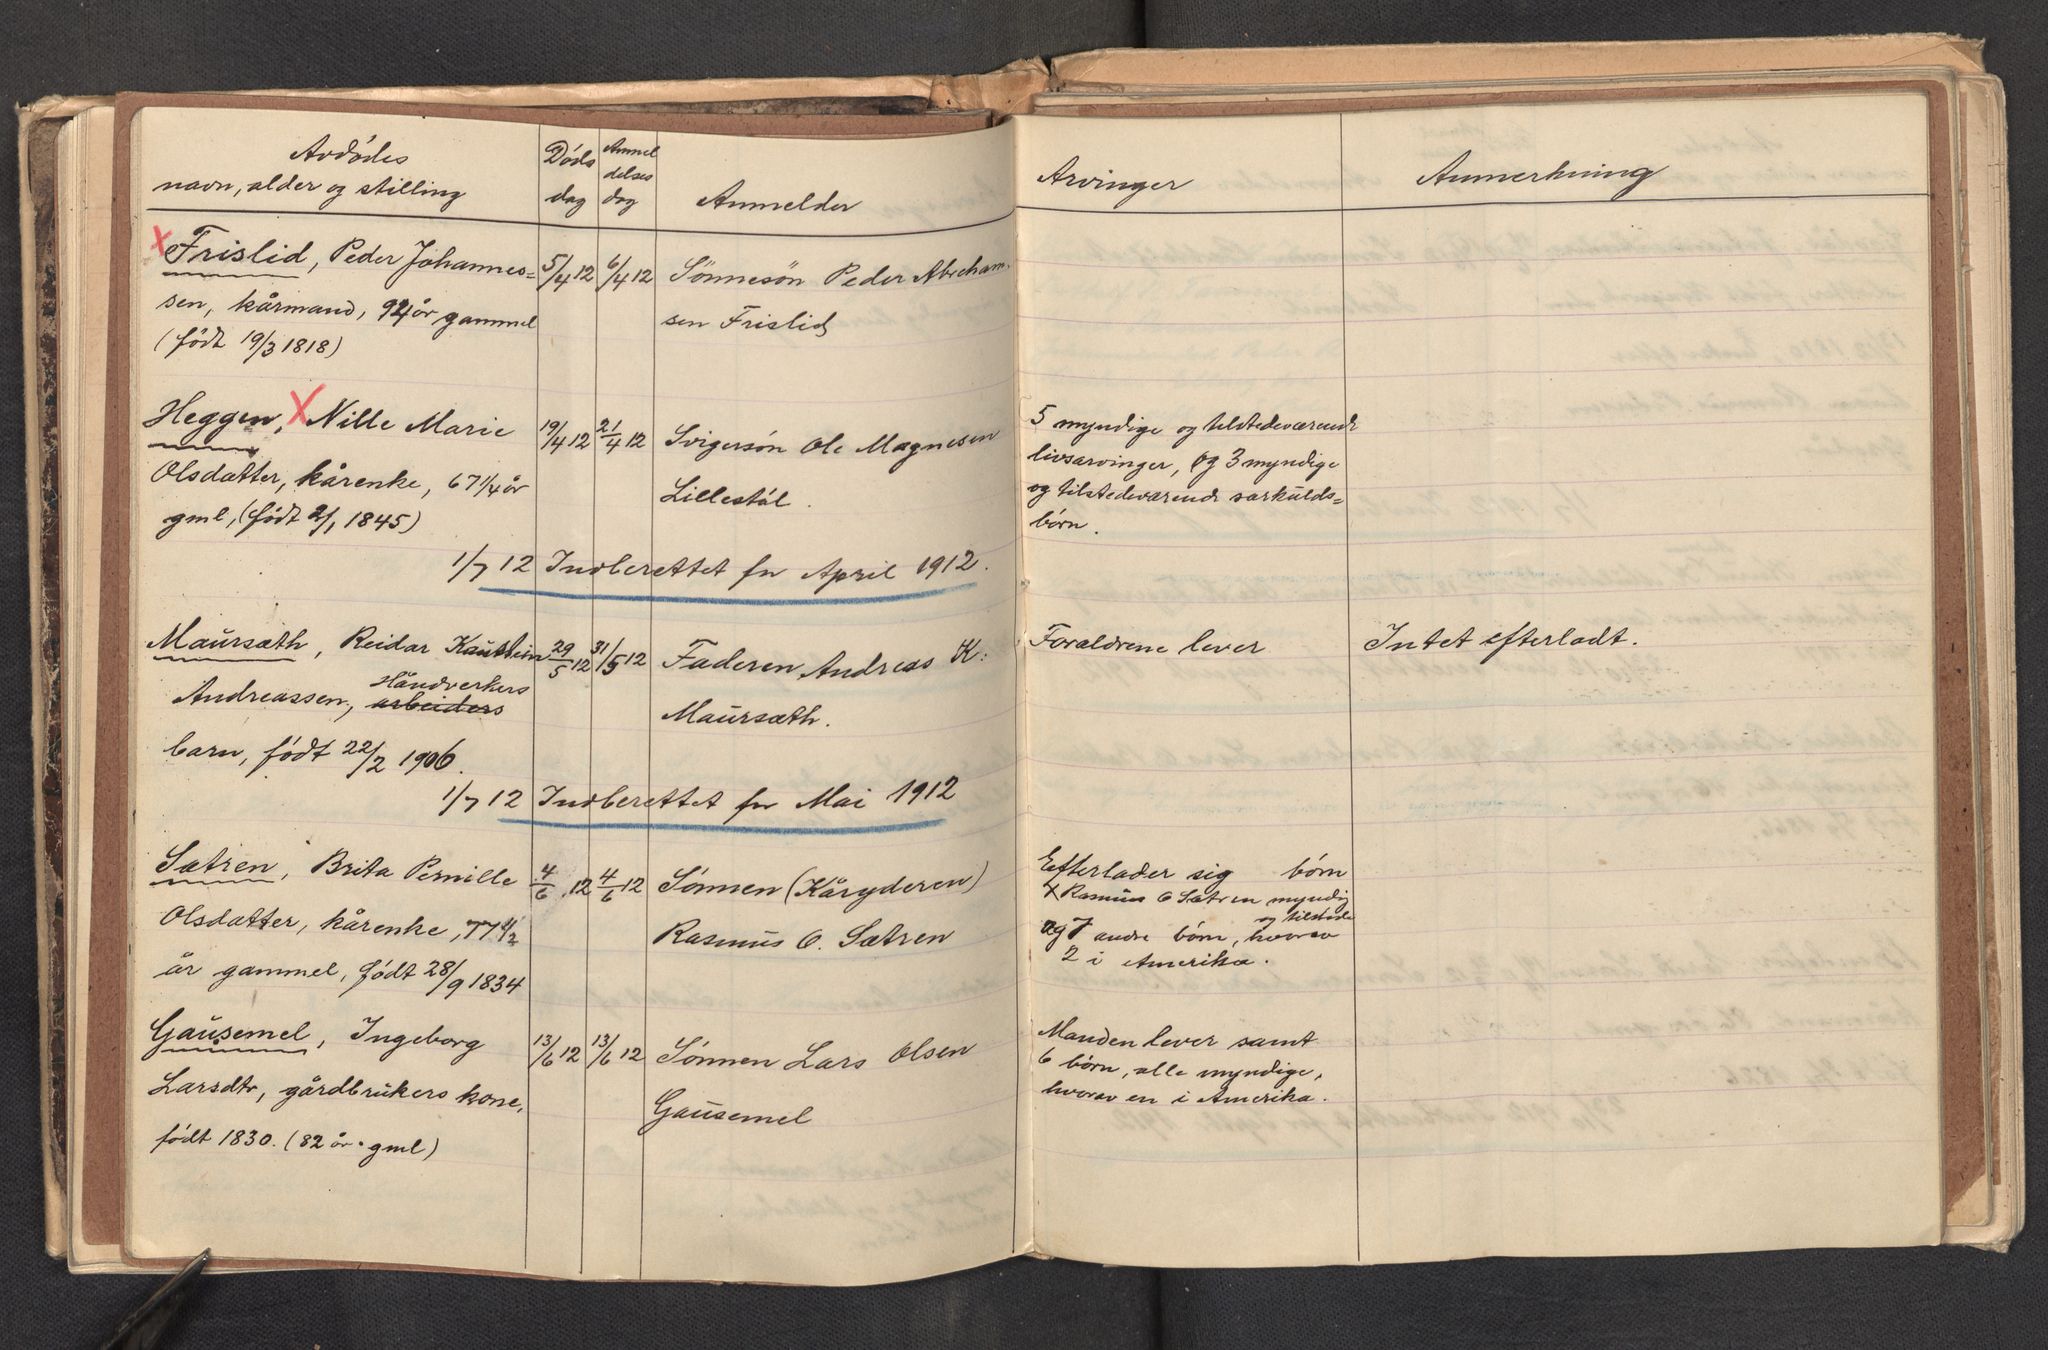 Avdødes
navn, alder og stilling
Døds
dag
Anmel
delses
dag
Anmelder
Arvinger
Anmerkning
X Frislid, Peder Johannes=
sen, kårmand, 94 år gammel
(født 19/3 1818)
5/4 12
6/4 12
Sönnesön Peder Abraham-
sen Frislid
Heggen, X Nille Marie
Olsdatter, kårenke, 67 1/4 år
gml, (født 2/1 1845)
19/4 12
21/4 12
Svigersøn Ole Magnesen
Lillestøl.
5 myndige og tilstedeværende
livsarvinger, og 3 myndige
og tilstedeværende særkulds=
børn.
1/7 12 Indberettet for April 1912.
Maursæth, Reidar
Andreassen, Håndverkers
arbeiders
barn, født 22/2 1906.
29/5 12
31/5 12
Faderen Andreas K:
Maursæth.
Forældrene lever
Intet efterladt.
1/7 12 Indberettet for Mai 1912
Sætren, Brita Pernille
Olsdatter, kårenke, 77 1/2
år gammel, født 28/9 1834
4/6 12
4/6 12
Sønnen (Kåryderen)
Rasmus O. Sætren
Efterlader sig børn
x Rasmus O Sætren myndig
og tilstede
og 7 andre børn, hvorav
2 i Amerika.
Gausemel, Ingeborg
Larsdtr, gårdbrukers kone,
født 1830. (82 år gml)
13/6 12
13/6 12
Sønnen Lars Olsen
Gausemel
Manden lever samt
6 børn, alle myndige,
hvorav en i Amerika.